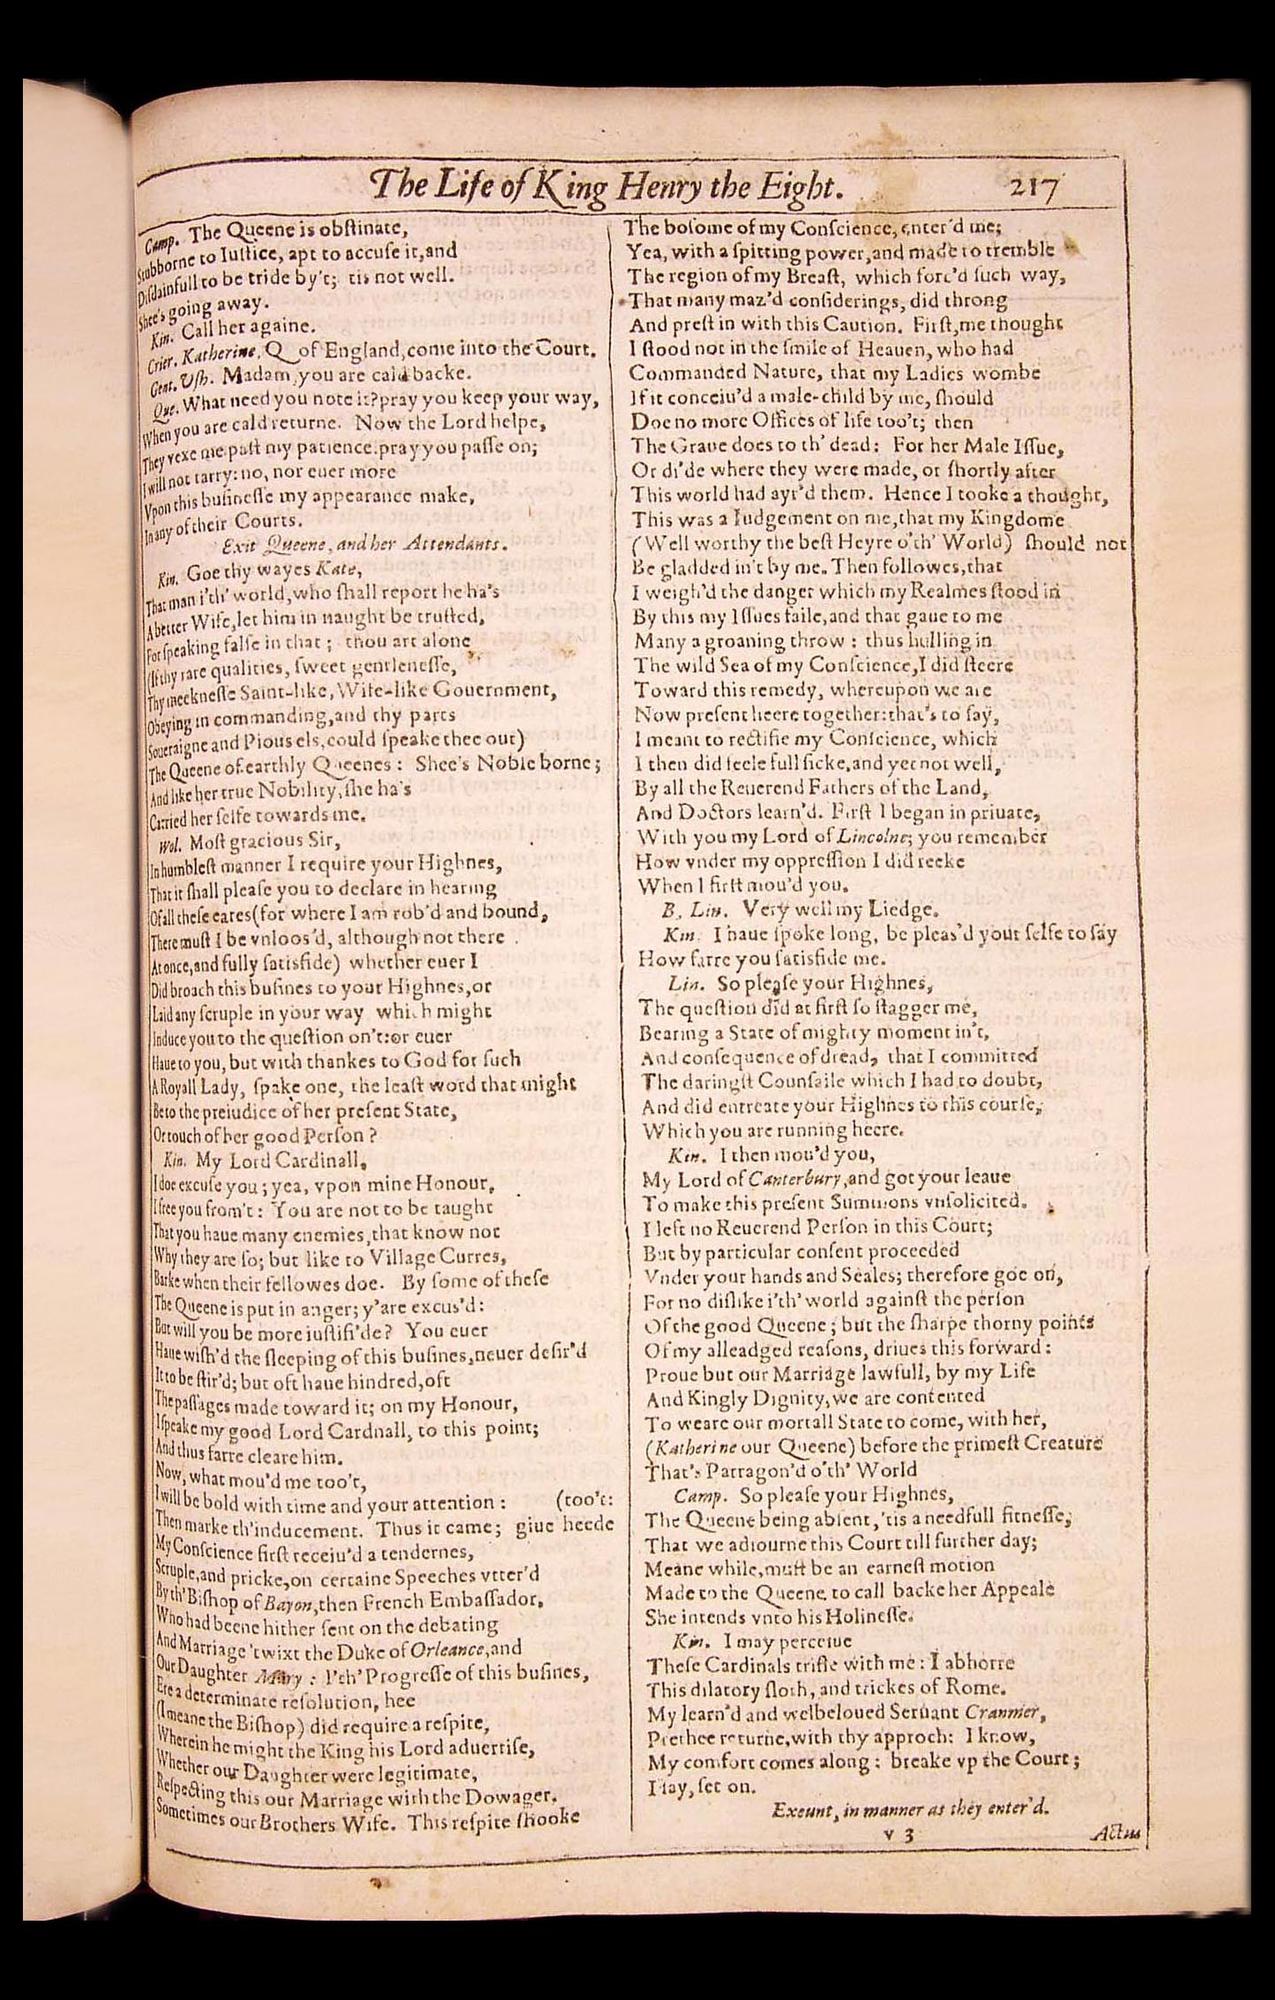 The Life of King Henry the Eight. 217
Camp. The Queene is obſtinate,
Stubborne to Iuſtice, apt to accuſe it,and
Diſdainfull to be tride by't; tis not well.
Shee's going away.
Kin. Call her againe.
Crier. Katherine, Q of England,come into the Court.
Gent.Vſh. Madam,you are cald backe.
Que. What need you note it?pray you keep your way,
When you are cald returne. Now the Lord helpe,
They vexe me paſt my patience.pray you paſſe on;
I will not tarry: no, nor euer more
Vpon this buſineſſe my appearance make,
In any of their Courts.
Exit Queene, and her Attendants.
Kin. Goe thy wayes Kate,
That man i'th' world,who ſhall report he ha's
A better Wife,let him in naught be truſted,
For ſpeaking falſe in that ; thou art alone
(If thy rare qualities, ſweet gentleneſſe,
Thy meekneſſe Saint-like,Wife-like Gouernment,
Obeying in commanding,and thy parts
Soueraigne and Pious els,could ſpeake thee out)
The Queene of earthly Queenes : Shee's Noble borne ;
And like her true Nobility,ſhe ha's
Carried her ſelfe towards me.
Wol. Moſt gracious Sir,
In humbleſt manner I require your Highnes,
That it ſhall pleaſe you to declare in hearing
Of all theſe eares(for where I am rob'd and bound,
There muſt I be vnloos'd, although not there
At once,and fully ſatisfide) whether euer I
Did broach this buſines to your Highnes,or
Laid any ſcruple in your way which might
Induce you to the queſtion on't:or euer
Haue to you, but with thankes to God for ſuch
A Royall Lady, ſpake one, the leaſt word that might
Be to the preiudice of her preſent State,
Or touch of her good Perſon ?
Kin. My Lord Cardinall,
I doe excuſe you ; yea, vpon mine Honour,
I free you from't : You are not to be taught
That you haue many enemies,that know not
Why they are ſo; but like to Village Curres,
Barke when their fellowes doe. By ſome of theſe
The Queene is put in anger; y'are excus'd :
But will you be more iuſtifi'de? You euer
Haue wiſh'd the ſleeping of this buſines,neuer deſir'd
It to be ſtir'd; but oft haue hindred,oft
The paſſages made toward it; on my Honour,
I ſpeake my good Lord Cardnall, to this point;
And thus farre cleare him.
Now, what mou'd me too't,
I will be bold with time and your attention : (too't:
Then marke th'inducement. Thus it came; giue heede
My Conſcience firſt receiu'd a tendernes,
Scruple,and pricke,on certaine Speeches vtter'd
By th' Biſhop of Bayon,then French Embaſſador,
Who had beene hither ſent on the debating
And Marriage 'twixt the Duke of Orleance,and
Our Daughter Mary : I'th' Progreſſe of this buſines,
Ere a determinate reſolution, hee
(I meane the Biſhop) did require a reſpite,
Wherein he might the King his Lord aduertiſe,
Whether our Daughter were legitimate,
Reſpecting this our Marriage with the Dowager,
Sometimes our Brothers Wife. This reſpite ſhooke
The boſome of my Conſcience, enter'd me;
Yea, with a ſpitting power,and made to tremble
The region of my Breaſt, which forc'd ſuch way,
That many maz'd conſiderings, did throng
And preſt in with this Caution. Firſt,me thought
I ſtood not in the ſmile of Heauen, who had
Commanded Nature, that my Ladies wombe
If it conceiu'd a male-child by me, ſhould
Doe no more Offices of life too't; then
The Graue does to th' dead: For her Male Iſſue,
Or di'de where they were made, or ſhortly after
This world had ayr'd them. Hence I tooke a thought,
This was a Iudgement on me,that my Kingdome
(Well worthy the beſt Heyre o'th' World) ſhould not
Be gladded in't by me. Then followes,that
I weigh'd the danger which my Realmes ſtood in
By this my Iſſues faile,and that gaue to me
Many a groaning throw : thus hulling in
The wild Sea of my Conſcience,I did ſteere
Toward this remedy, whereupon we are
Now preſent heere together:that's to ſay,
I meant to rectifie my Conſcience, which
I then did feele full ſicke,and yet not well,
By all the Reuerend Fathers of the Land,
And Doctors learn'd. Firſt I began in priuate,
With you my Lord of Lincolne; you remember
How vnder my oppreſſion I did reeke
When I firſt mou'd you.
B. Lin. Very well my Liedge.
Kin. I haue ſpoke long, be pleas'd your ſelfe to ſay
How farre you ſatisfide me.
Lin. So pleaſe your Highnes,
The queſtion did at firſt ſo ſtagger me,
Bearing a State of mighty moment in't,
And conſequence of dread, that I committed
The daringſt Counſaile which I had to doubt,
And did entreate your Highnes to this courſe,
Which you are running heere.
Kin. I then mou'd you,
My Lord of Canterbury,and got your leaue
To make this preſent Summons vnſolicited.
I left no Reuerend Perſon in this Court;
But by particular conſent proceeded
Vnder your hands and Seales; therefore goe on,
For no diſlike i'th' world againſt the perſon
Of the good Queene ; but the ſharpe thorny points
Of my alleadged reaſons, driues this forward :
Proue but our Marriage lawfull, by my Life
And Kingly Dignity,we are contented
To weare our mortall State to come, with her,
(Katherine our Queene) before the primeſt Creature
That's Parragon'd o'th' World
Camp. So pleaſe your Highnes,
The Queene being abſent,'tis a needfull fitneſſe,
That we adiourne this Court till further day;
Meane while,muſt be an earneſt motion
Made to the Queene to call backe her Appeale
She intends vnto his Holineſſe.
Kin. I may perceiue
Theſe Cardinals trifle with me : I abhorre
This dilatory ſloth, and trickes of Rome.
My learn'd and welbeloued Seruant Cranmer,
Prethee returne,with thy approch: I know,
My comfort comes along : breake vp the Court ;
I ſay, ſet on.
Exeunt, in manner as they enter'd.
v 3 Actus